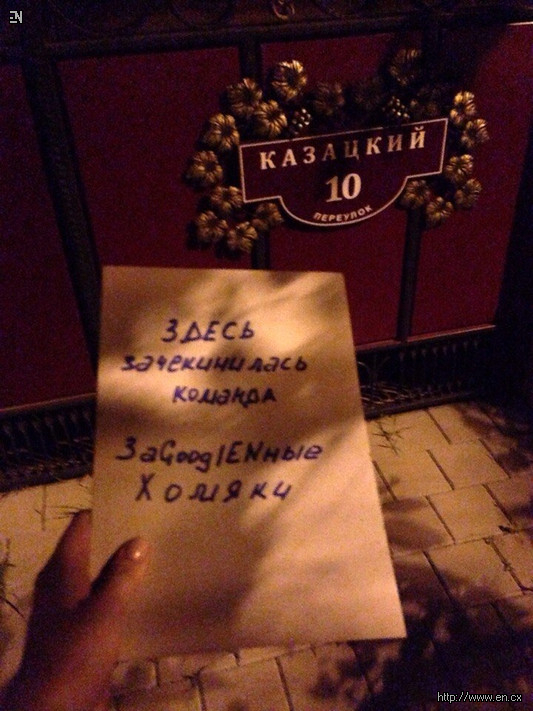 EN
КАЗАЦКИЙ
10
ПЕРЕУЛОК
ЗДЕСЬ
зачекинилась
команда
ЗаGooglENные
Хомяки
http://www.en.cx